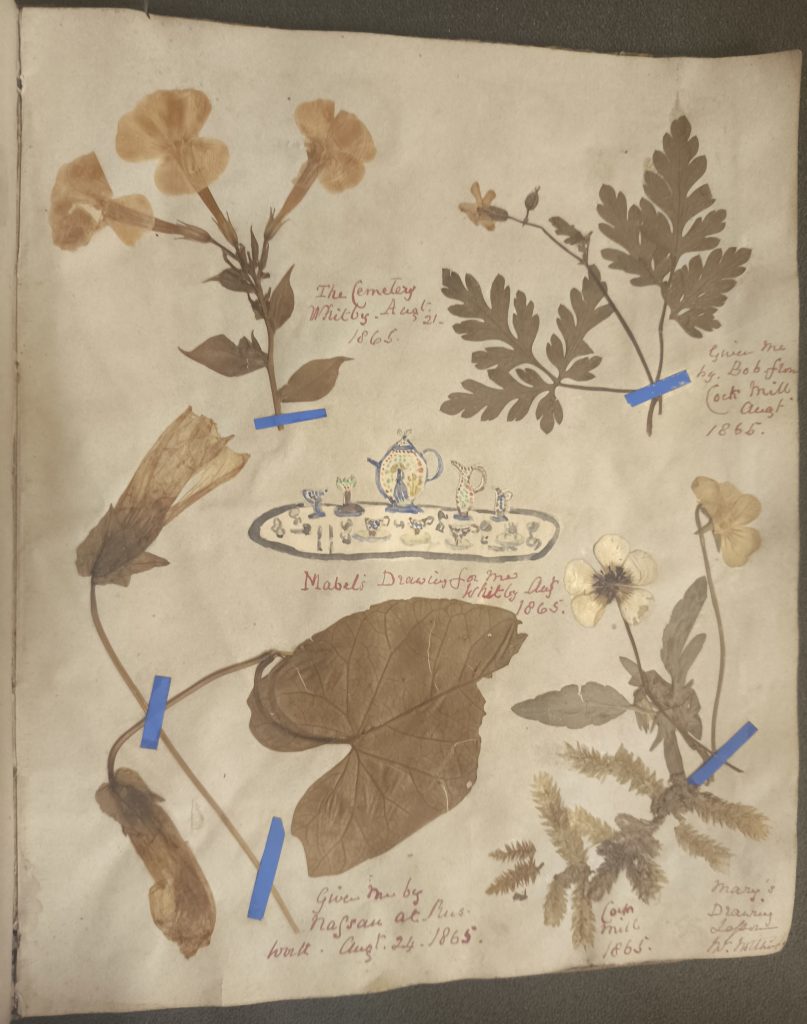 The Cemetery
Whitby. Augt. 21.
1865.
Given me
by Bob from
Cock Mill.
Augt
1865.
Mabel's Drawing for me
Whitby Aug
1865.
Given me by
Nassau at Rus
work. Augt. 24. 1865.
Cock
Mill
1865.
Mary's
Drawing
Lesson